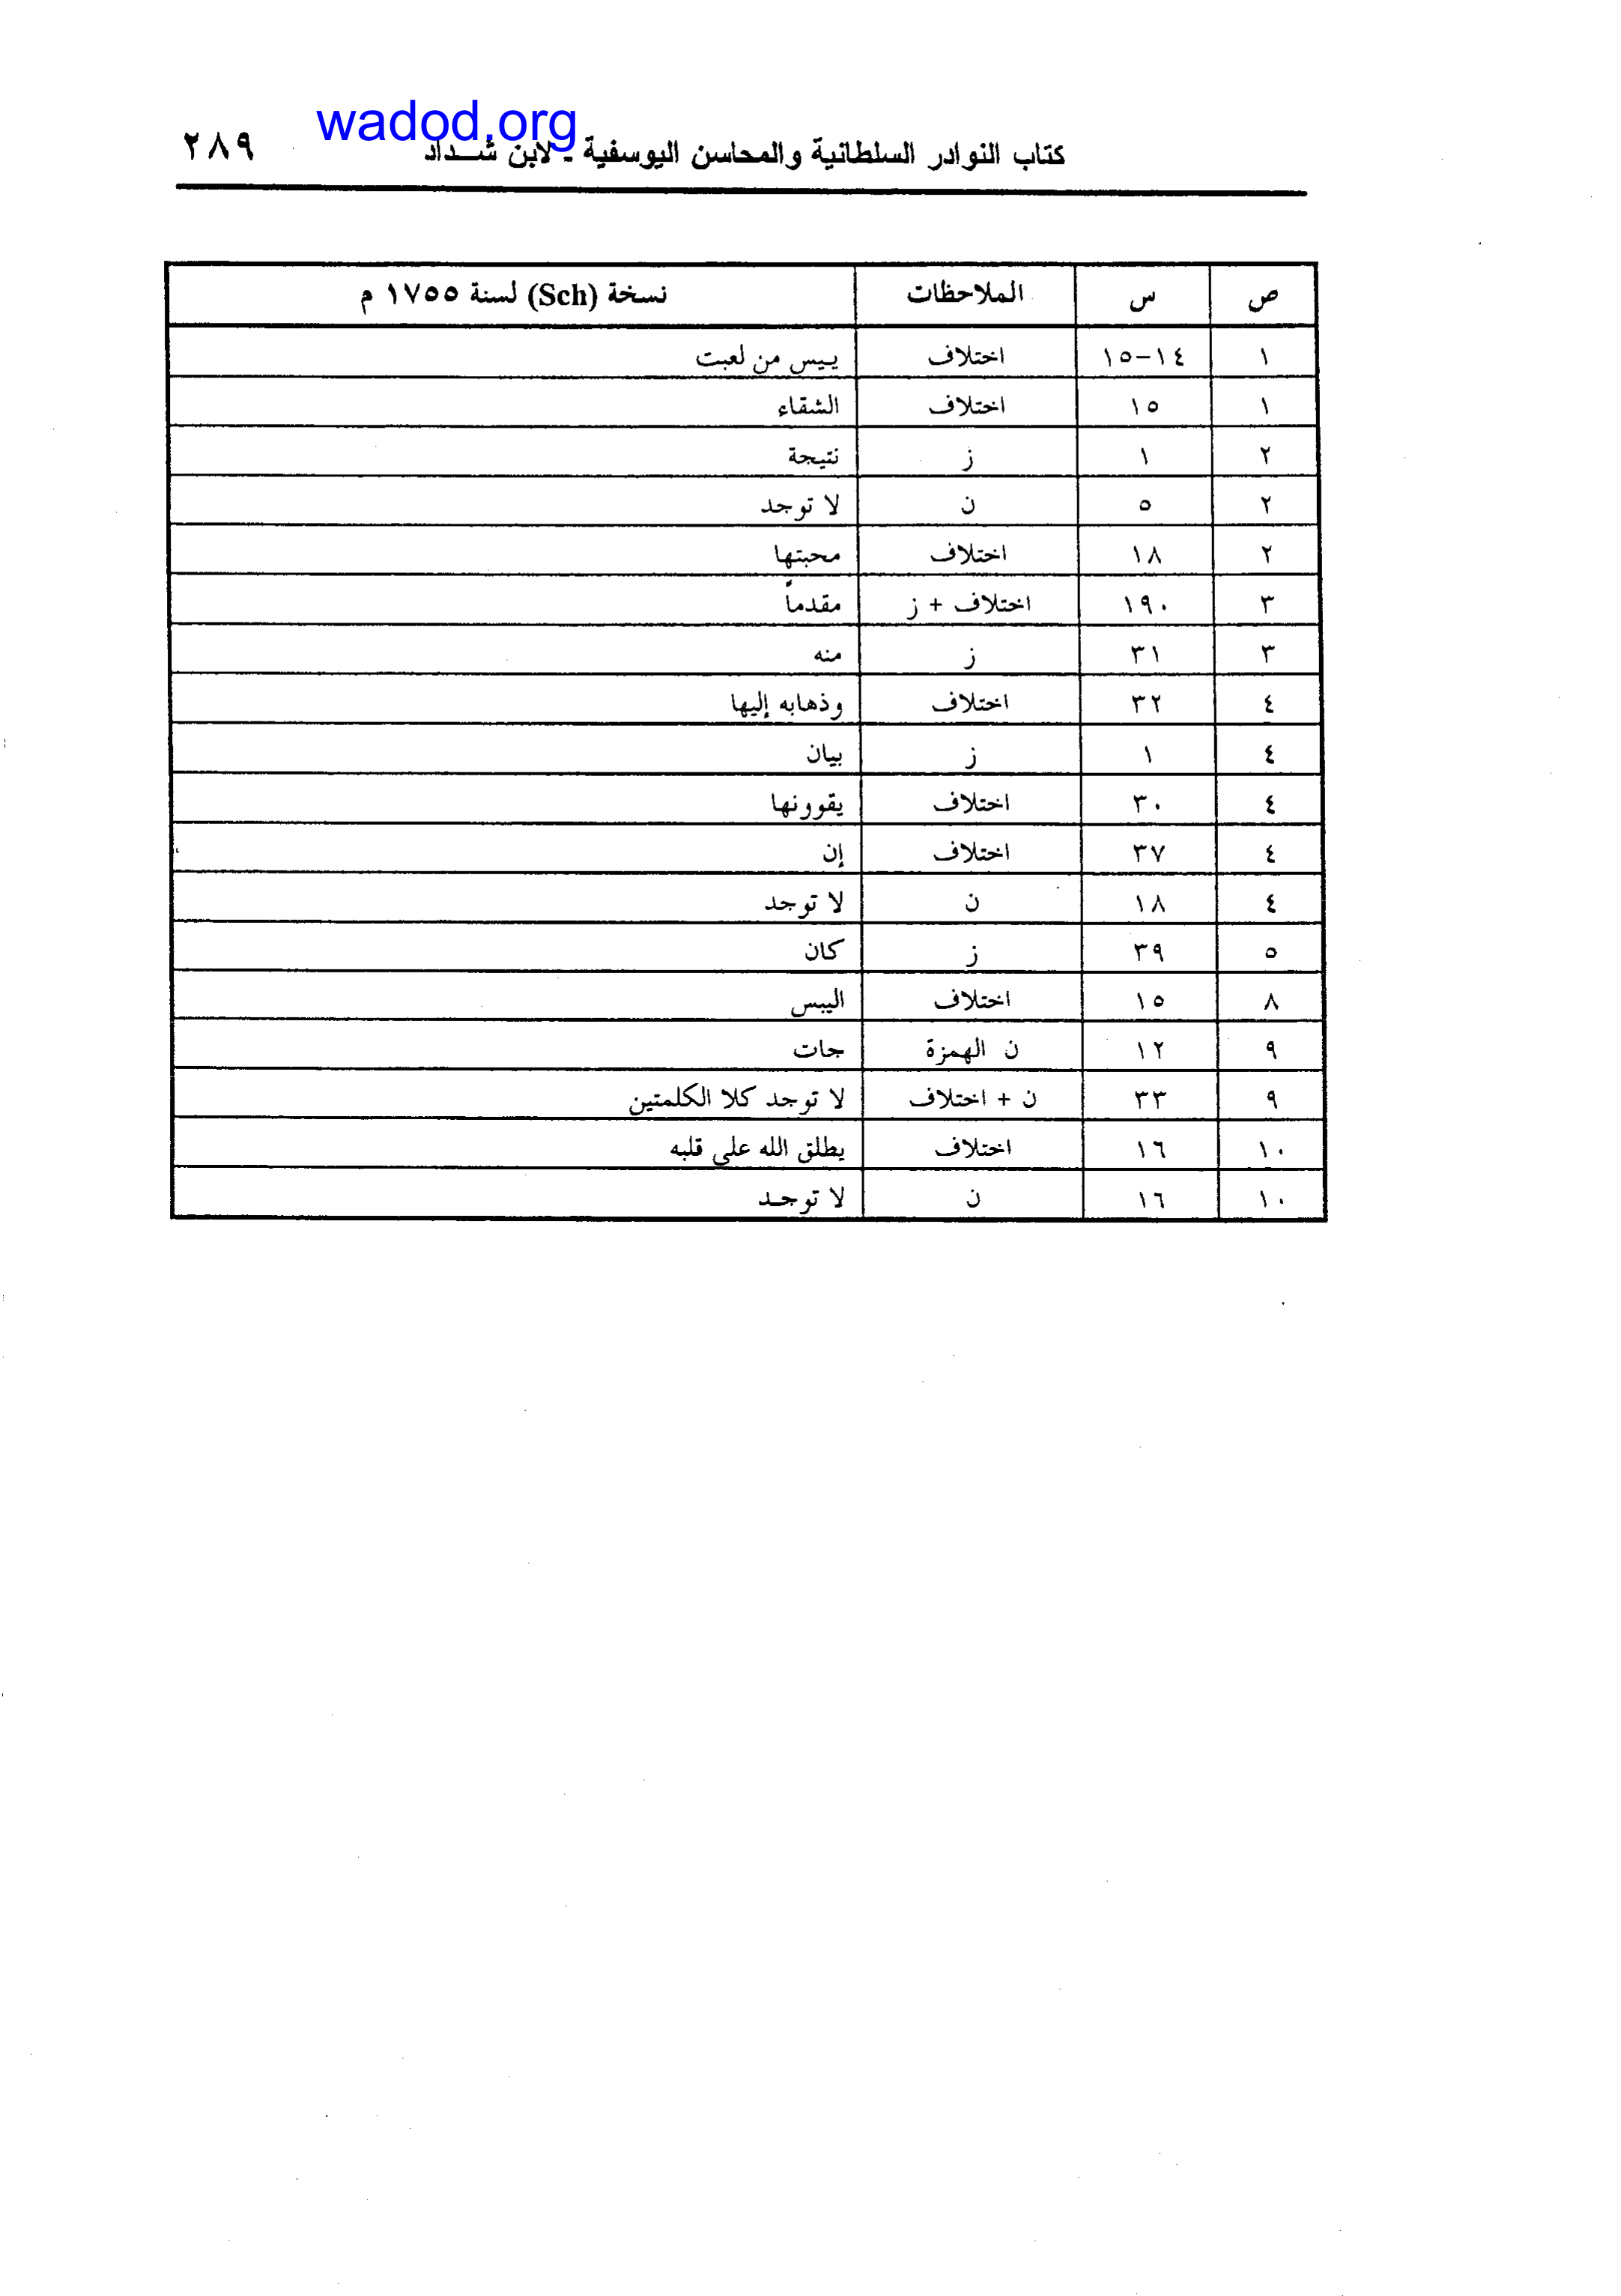 wadod.org
كتاب النوادر السلطانية والمحاسن اليوسفية - لابن شداد ٢٨٩
ص س الملاحظات نسخة (Sch) لسنة ١٧٥٥ م
١ ١٤-١٥ اختلاف ييس من لعبت
١ ١٥ اختلاف الشقاء
٢ ١ ز نتيجة
٢ ٥ ن لا توجد
٢ ١٨ اختلاف محبتها
٣ ١٩٠ اختلاف + ز مقدماً
٣ ٣١ ز منه
٤ ٣٢ اختلاف وذهابه إليها
٤ ١ ز بيان
٤ ٣٠ اختلاف يقوونها
٤ ٣٧ اختلاف إن
٤ ١٨ ن لا توجد
٥ ٣٩ ز كان
٨ ١٥ اختلاف اليبس
٩ ١٢ ن الهمزة جات
٩ ٣٣ ن + اختلاف لا توجد كلا الكلمتين
١٠ ١٦ اختلاف يطلق الله على قلبه
١٠ ١٦ ن لا توجد